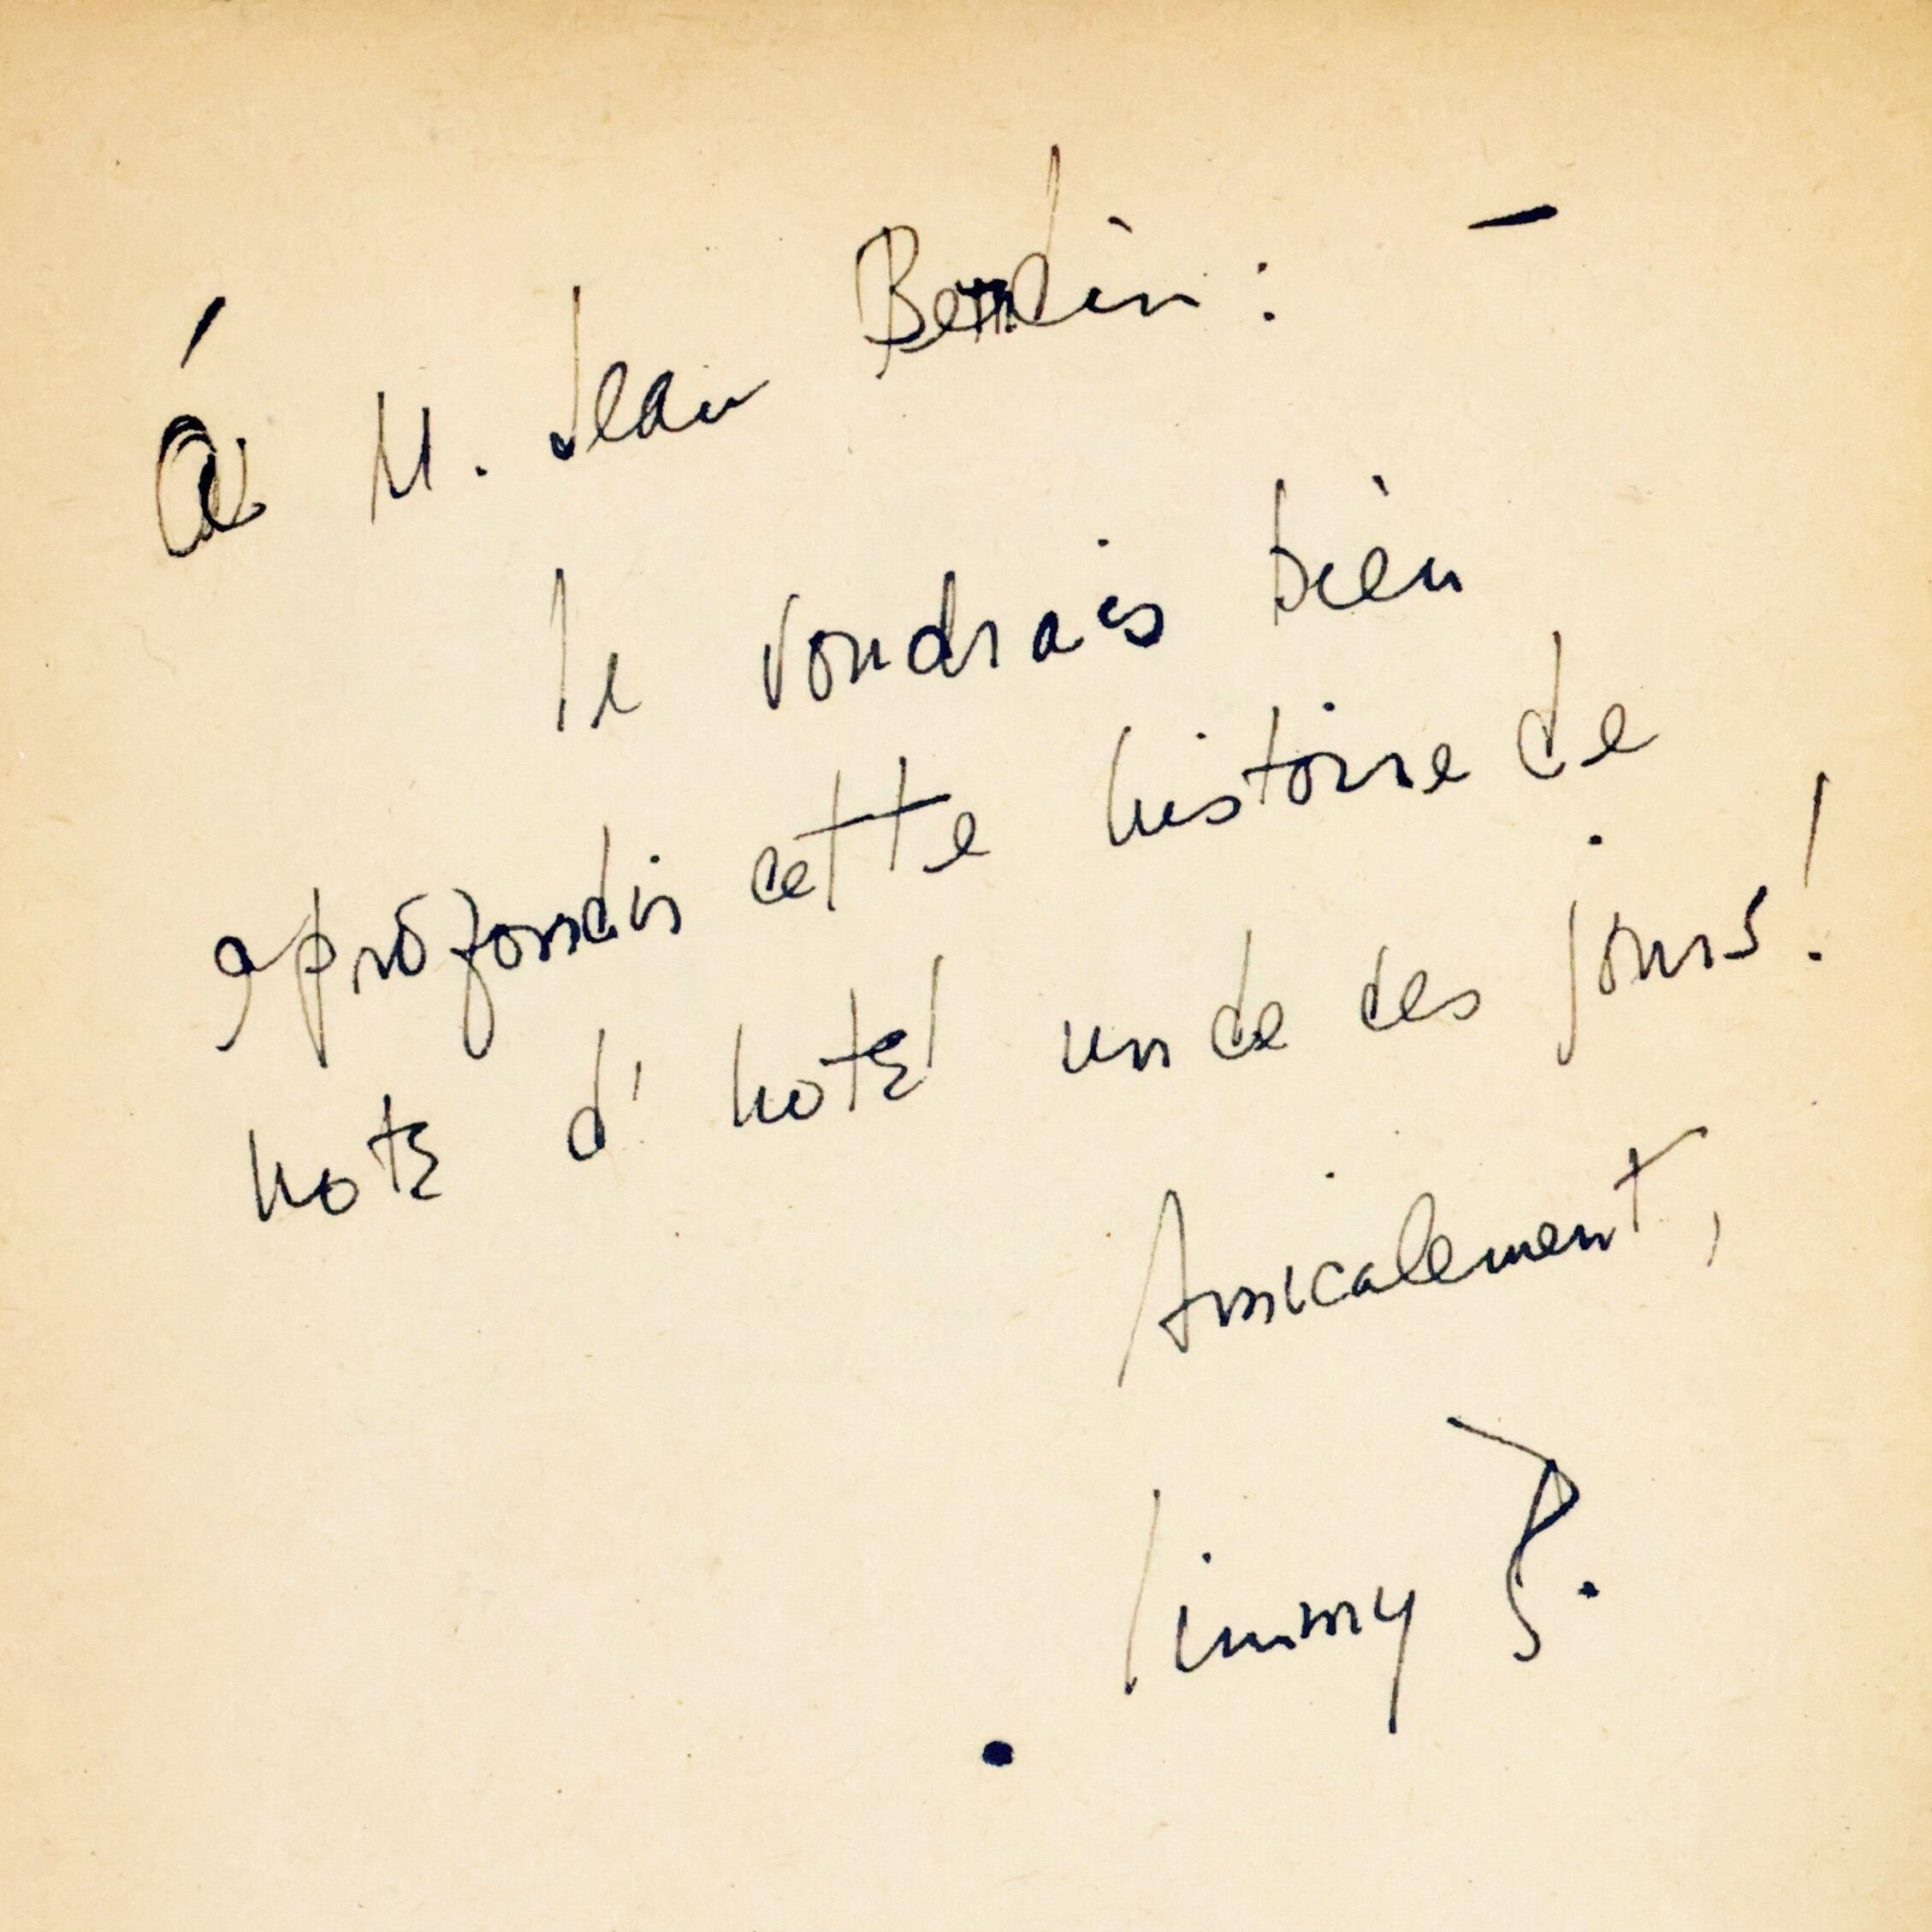 Á M. Jean :
Je voudrais bien
aprofondir cette histoire de
note d'hotel un de ces jours!
Amicalement,
Jimmy B.